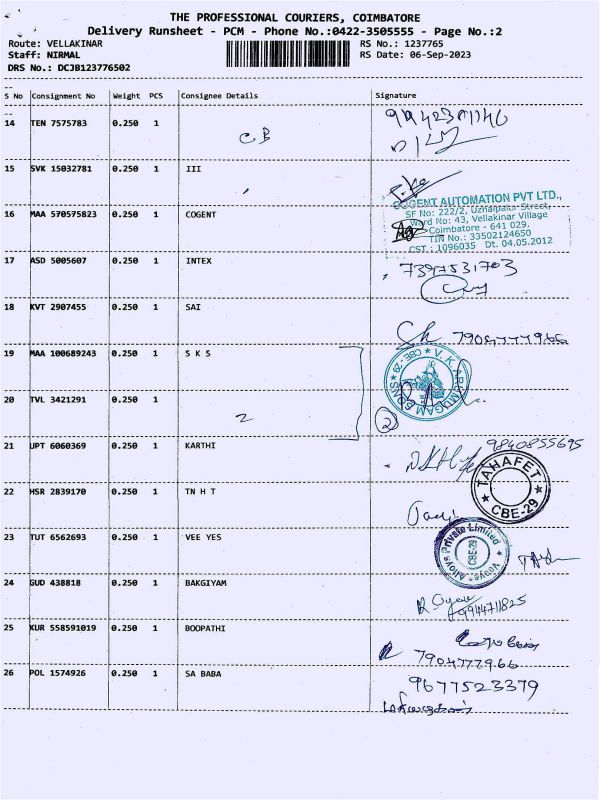 THE PROFESSIONAL COURIERS, COIMBATORE
Delivery Runsheet - PCM - Phone No.:0422-3505555 - Page No.:2
Route: VELLAKINAR RS No.: 1237765
Staff: NIRMAL RS Date: 06-Sep-2023
DRS No.: DCJB123776502
S No Consignment No Weight PCS Consignee Details Signature
14 TEN 7575783 0.250 1
CB
15 SVK 15032781 0.250 1 III
COGENT AUTOMATION PVT LTD.,
SF No: 222/2, Uzhaipalar Street,
16 MAA 570575823 0.250 1 COGENT
Ward No: 43, Vellakinar Village
Coimbatore - 641 029.
TIN No.: 33502124650
CST.: 1096035 Dt. 04.05.2012
17 ASD 5005607 0.250 1 INTEX
7397531703
18 KVT 2907455 0.250 1 SAI
7904777966
19 MAA 100689243 0.250 1 S K S
V.K. ARUMUGAM SONS CBE-29
20 TVL 3421291 0.250 1
2
2
21 UPT 6060369 0.250 1 KARTHI
9840855695
TAHAFET
CBE-29
22 HSR 2839170 0.250 1 TN H T
23 TUT 6562693 0.250 1 VEE YES
Private Limited
CBE-29
24 GUD 438818 0.250 1 BAKGIYAM
9944711825
25 KUR 558591019 0.250 1 BOOPATHI
7904777966
26 POL 1574926 0.250 1 SA BABA
9677523379